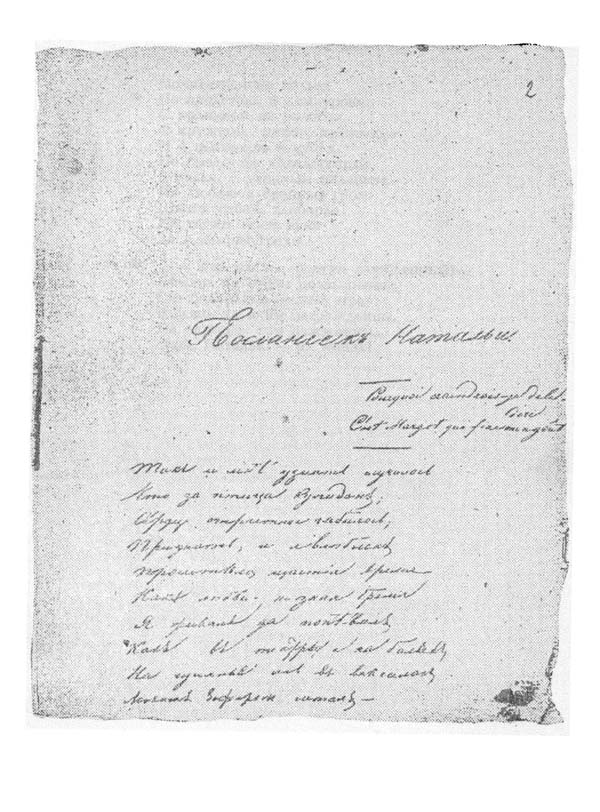 2
Посланіе къ Натальи.
Pourquoi craindrois-je de le
dire
C'est Margot qui fixe mon goût
Такъ и мнѣ узнать случилось
Что за птица Купидонъ;
Сердце плѣнилось;
Признаюсь, и я влюбленъ
Пролетѣло щастія время
Какъ любви, не зная бремя
Я живалъ да попѣвалъ
Какъ въ театрѣ и на балахъ
На гуляньѣ иль въ воксалахъ
Легкимъ Зефиромъ леталъ —